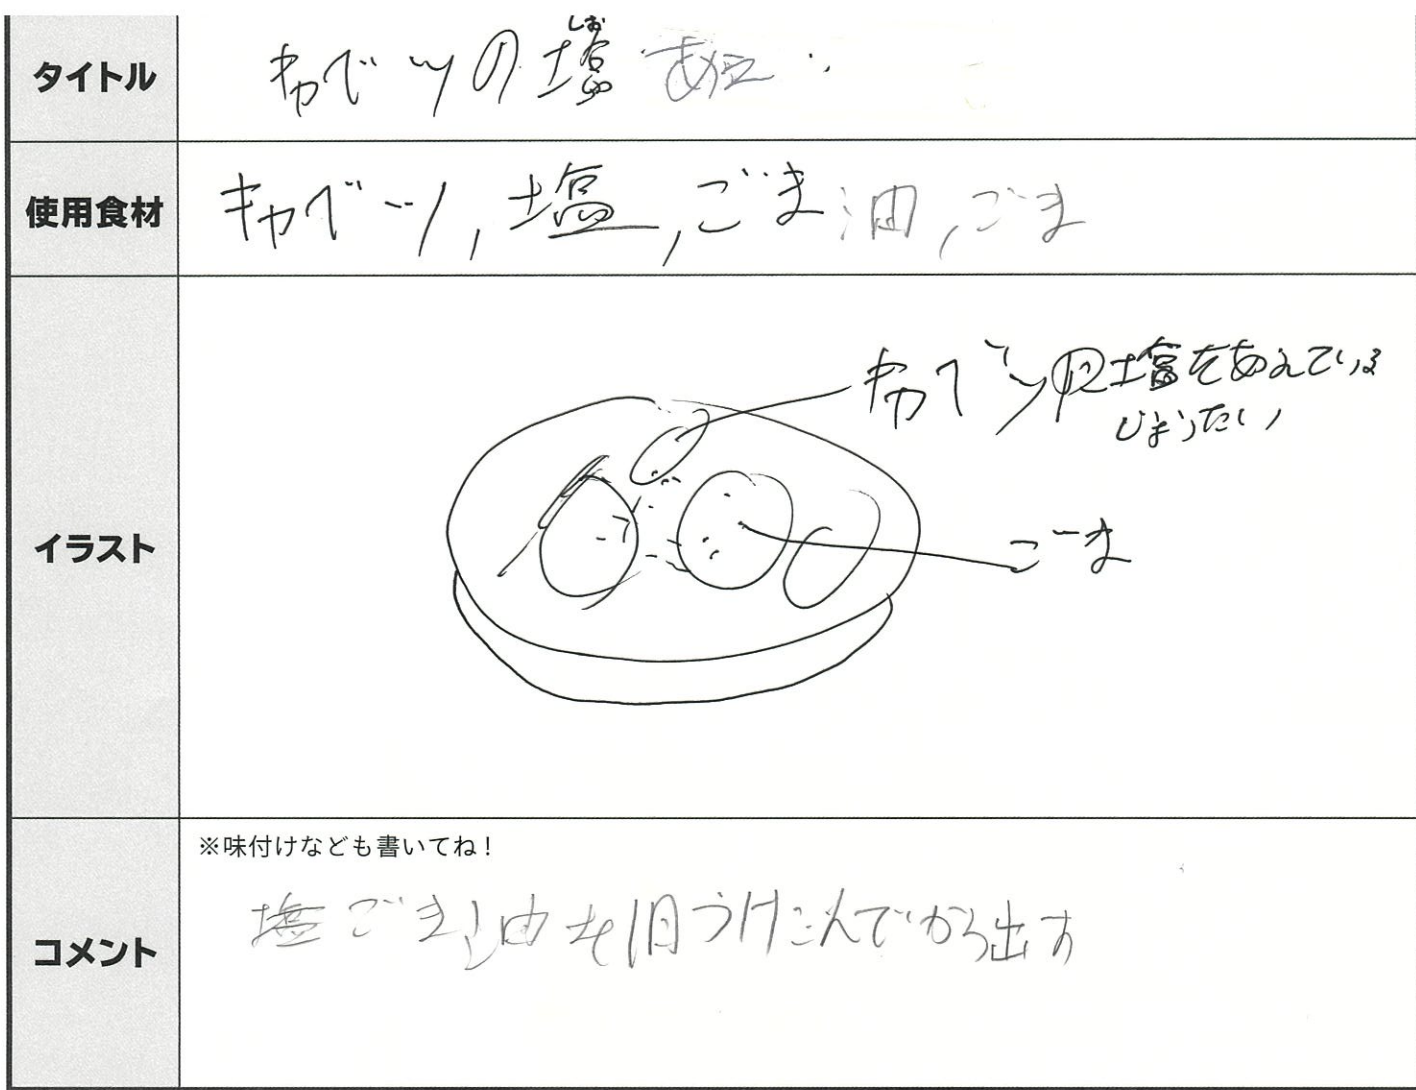 タイトル
しお
キャベツの塩あえ
使用食材
キャベツ,塩,ごま油,ごま
イラスト
キャベツの塩をあえている
じょうたい
ごま
コメント
※味付けなども書いてね!
塩ごま油を1日つけこんでから出す